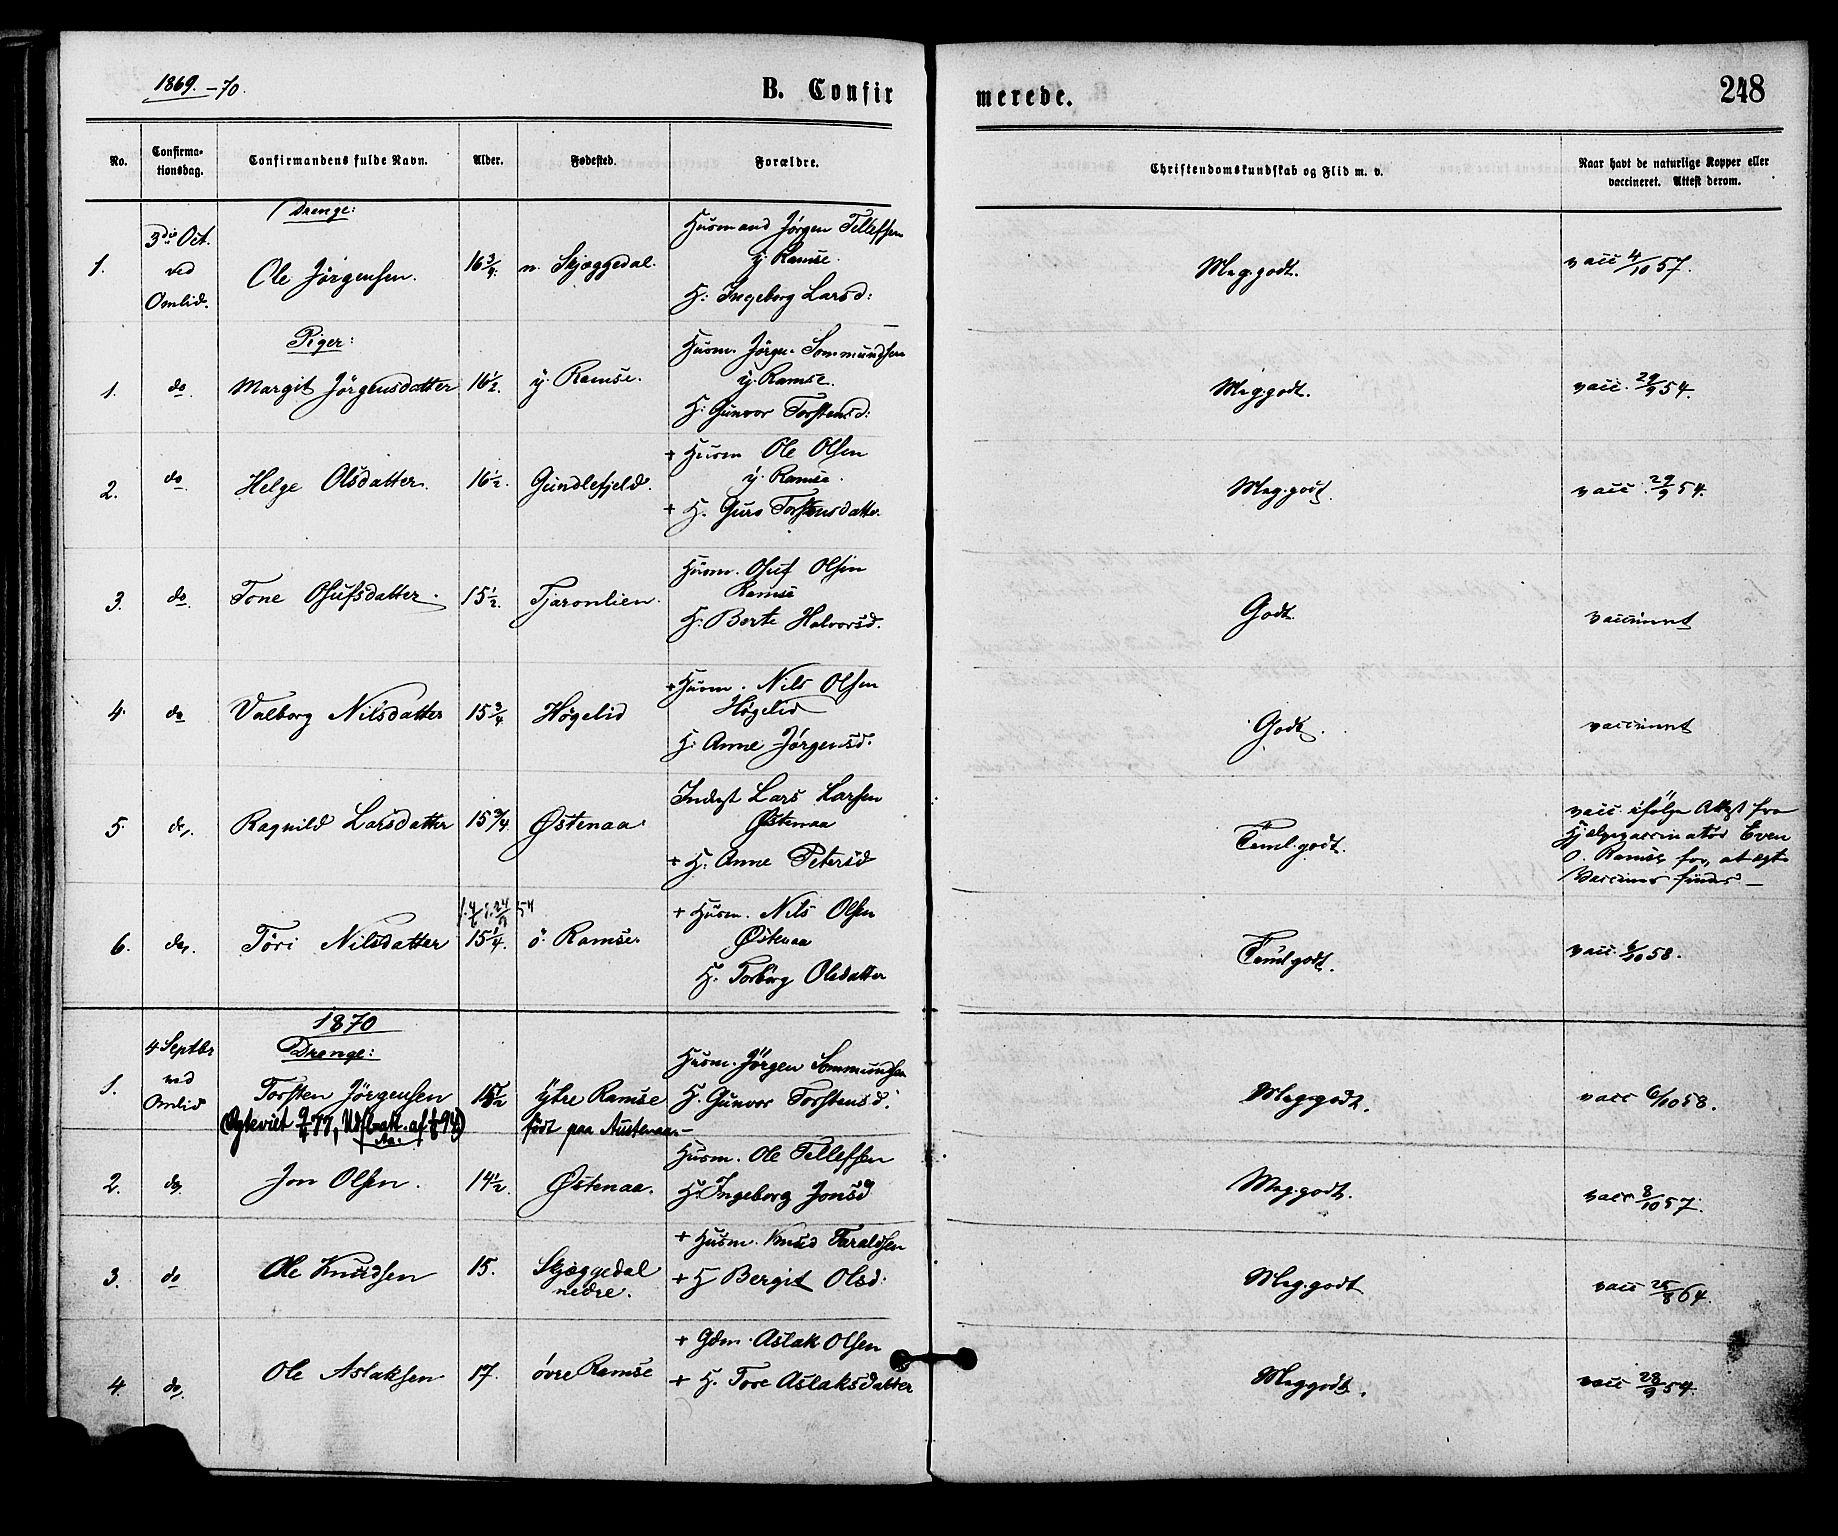 1869.-70.
B. Confir
merede.
248
No.
Confirma-
tionsdag.
Confirmandens fulde Navn.
Alder.
Fødested.
Forældre.
Christendomskundskab og Flid m. v.
Naar havt de naturlige Kopper eller
vaccineret. Attest derom.
Drenge:
1.
3die Oct.
ved
Omlid.
Ole Jørgensen.
16 3/4.
n. Skjæggedal.
Husmand Jørgen Tellefsen
y. Ramse.
H: Ingeborg Larsd:
Meg. godt.
vacc 4/10 57.
Piger:
1.
do
Margit Jørgensdatter
16 1/2.
y. Ramse.
Husm. Jörgen Sommundsen
y. Ramse.
H: Gunvor Torstensd:
Meg. godt.
vacc. 29/9 54.
2.
do
Helge Olsdatter.
16 1/2.
Gundlefjeld.
+ Husm Ole Olsen
y. Ramse.
+ H. Guro Torstensdatter.
Meg. godt.
vacc. 29/9 54.
3.
do.
Tone Osufsdatter.
15 1/2.
Tjaronlien.
Husm. Osuf Olsen
Ramse
H: Berte Halvorsd.
Godt.
vaccinert
4.
do
Valborg Nilsdatter
15 3/4
Høgelid
+ Husm. Nils Olsen
Høgelid
H: Anne Jørgensd.
Godt.
vaccinert
5.
do.
Ragnild Larsdatter
15 3/4
Østenaa.
Inderst Lars Larsen
Østenaa
+ H. Anne Petersd
Teml. godt.
vacc ifølge Attest fra
Hjælpevaccinatør Even
O. Ramse for, at ægte
Vacciner findes —
6.
do.
Töri Nilsdatter
15 1/4.
ö. Ramse.
+ Husm. Nils Olsen
Østenaa
H. Torbörg Olsdatter
Teml godt.
vacc. 6/10 58.
1870
Drenge:
1.
4 Septbr
ved
Omlid
Torsten Jörgensen
15 1/2
Ytre Ramse
født paa Austenaa.—
Husm. Jörgen Sommundsen
H. Gunvor Torstensd.
Meg. godt.
vacc 6/10 58.
2.
do.
Jon Olsen.
14 1/2.
Østenaa.
Husm. Ole Tellefsen
H: Ingeborg Jonsd
Meg. godt.
vacc 8/10 57.
3.
do
Ole Knudsen
15.
Skjæggedal
nedre.
+ Husm. Knud Taraldsen
+ H Bergit Olsd:
Meg. godt
vacc 25/8 64.
4.
do.
Ole Aslaksen
17.
övre Ramse
+ Gdm. Aslak Olsen
+ H. Tore Aslaksdatter
Meg godt.
vacc 28/9 54.